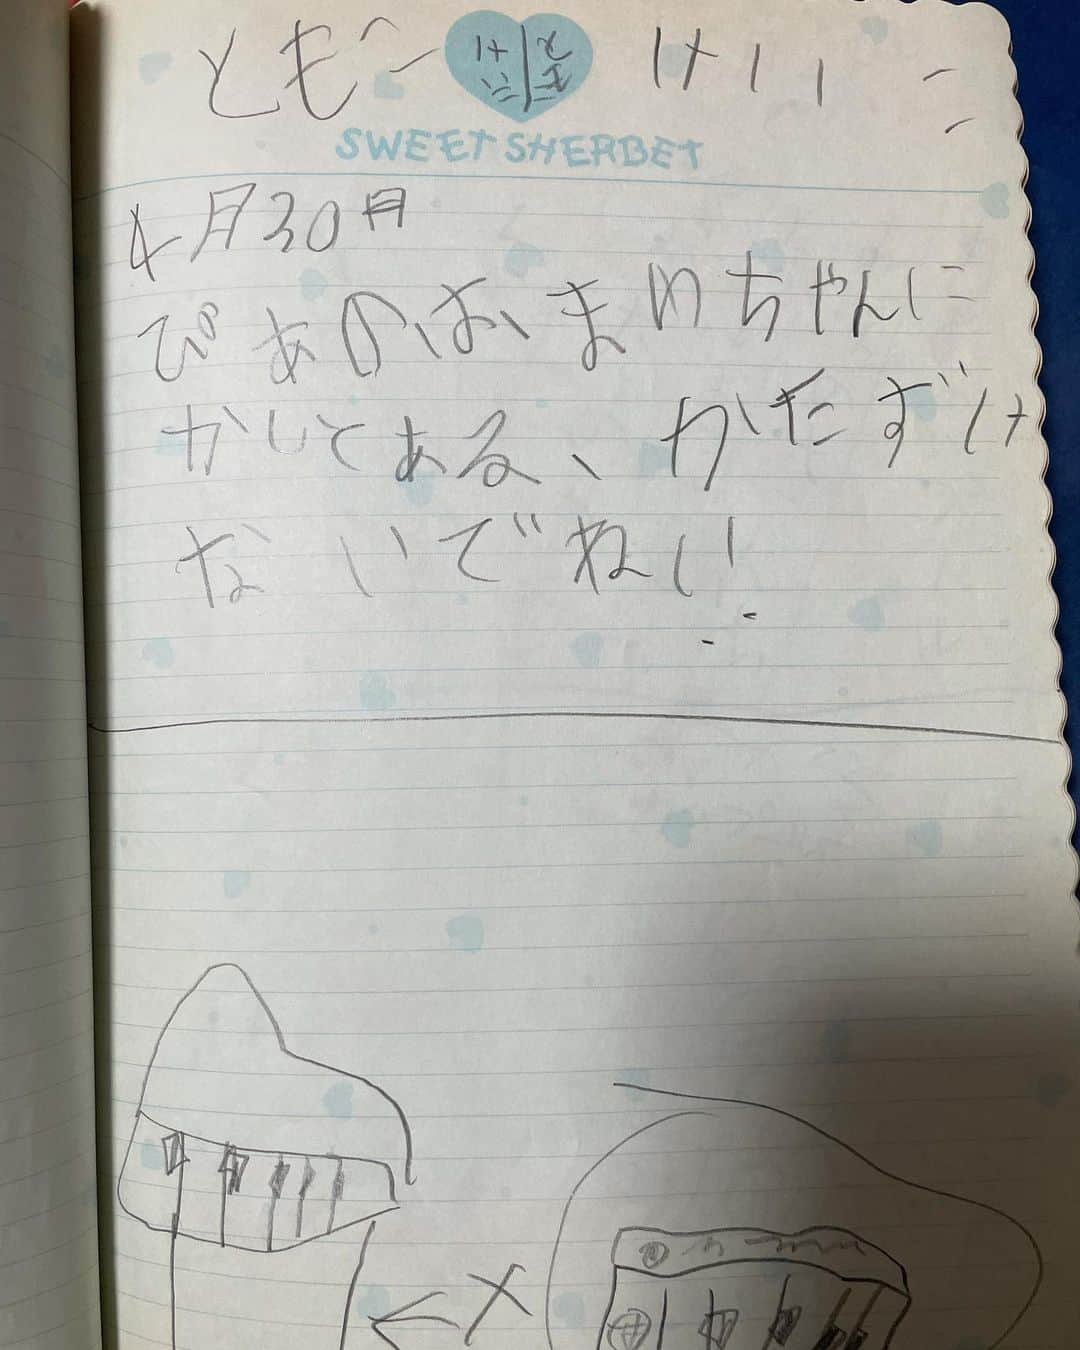 とも けいこ
けいこ とも
SWEET SHERBET
4月30日
ぴあのは、まめちゃんに
かしてある、かたずけ
ないでねい!